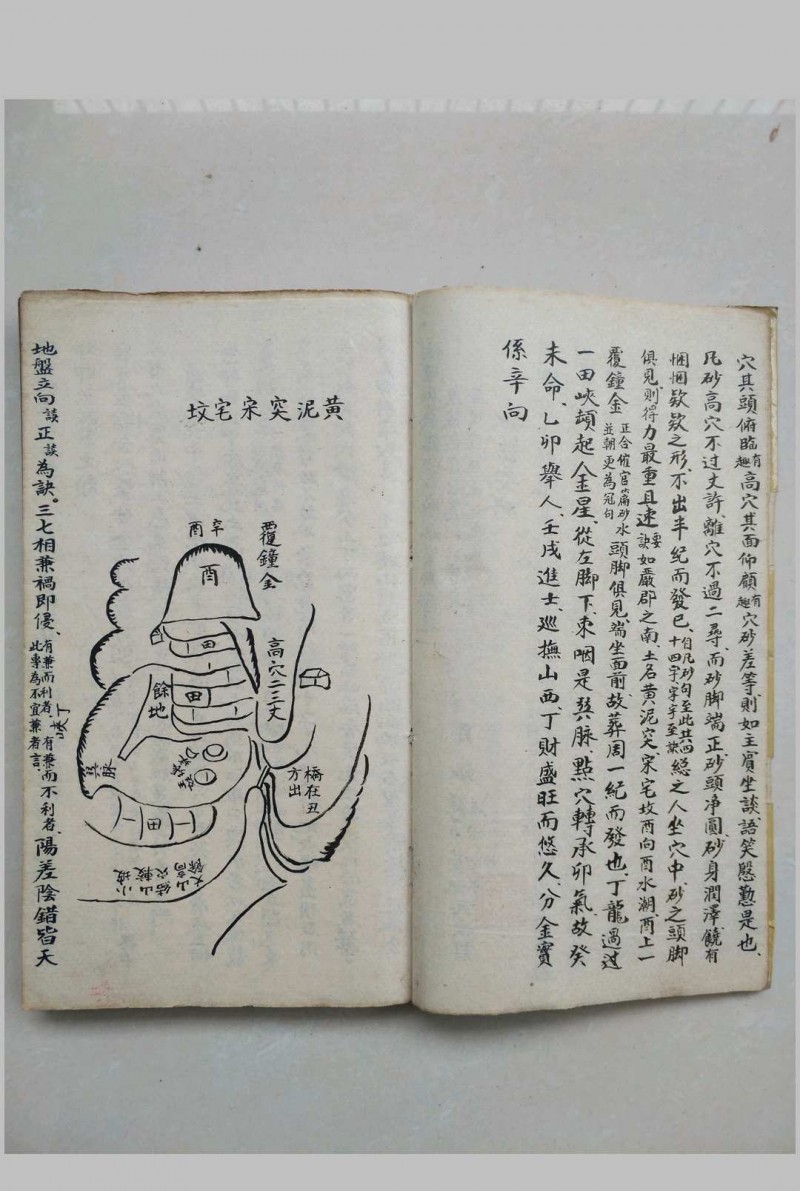 穴其頭俯臨有趣高穴其面仰顧有趣穴砂差等則如主賓坐談語笑慇懃是也
凡砂高穴不过丈許離穴不過二尋而砂脚端正砂頭净圓砂身潤澤饒有
悃悃欵欵之形不出半紀而發已自凡砂句至此共四十四字字字至訣總之人坐穴中砂之頭脚
俱見則得力最重且速要訣如嚴郡之南土名黄泥突宋宅坟酉向酉水潮酉上一
覆鐘金正合催官篇砂水並朝更為冠句頭脚俱見端坐面前故葬周一紀而發也丁龍過过
一田峽頓起金星從左脚下束咽是巽脉點穴轉承卯氣故癸
未命乙卯舉人壬戌進士巡撫山西丁財盛旺而悠久分金實
係辛向
黄泥突宋宅坟
覆鐘金
辛酉
酉
高穴二三丈
田
餘地
田
橋在丑
方出
巽脉
丁峽
田
小坡
結穴
山較
山高
丈餘
地盤立向談正談為訣。三七相兼禍即侵有兼而利者有兼而不利者此專為不宜兼者言陽差陰錯皆天